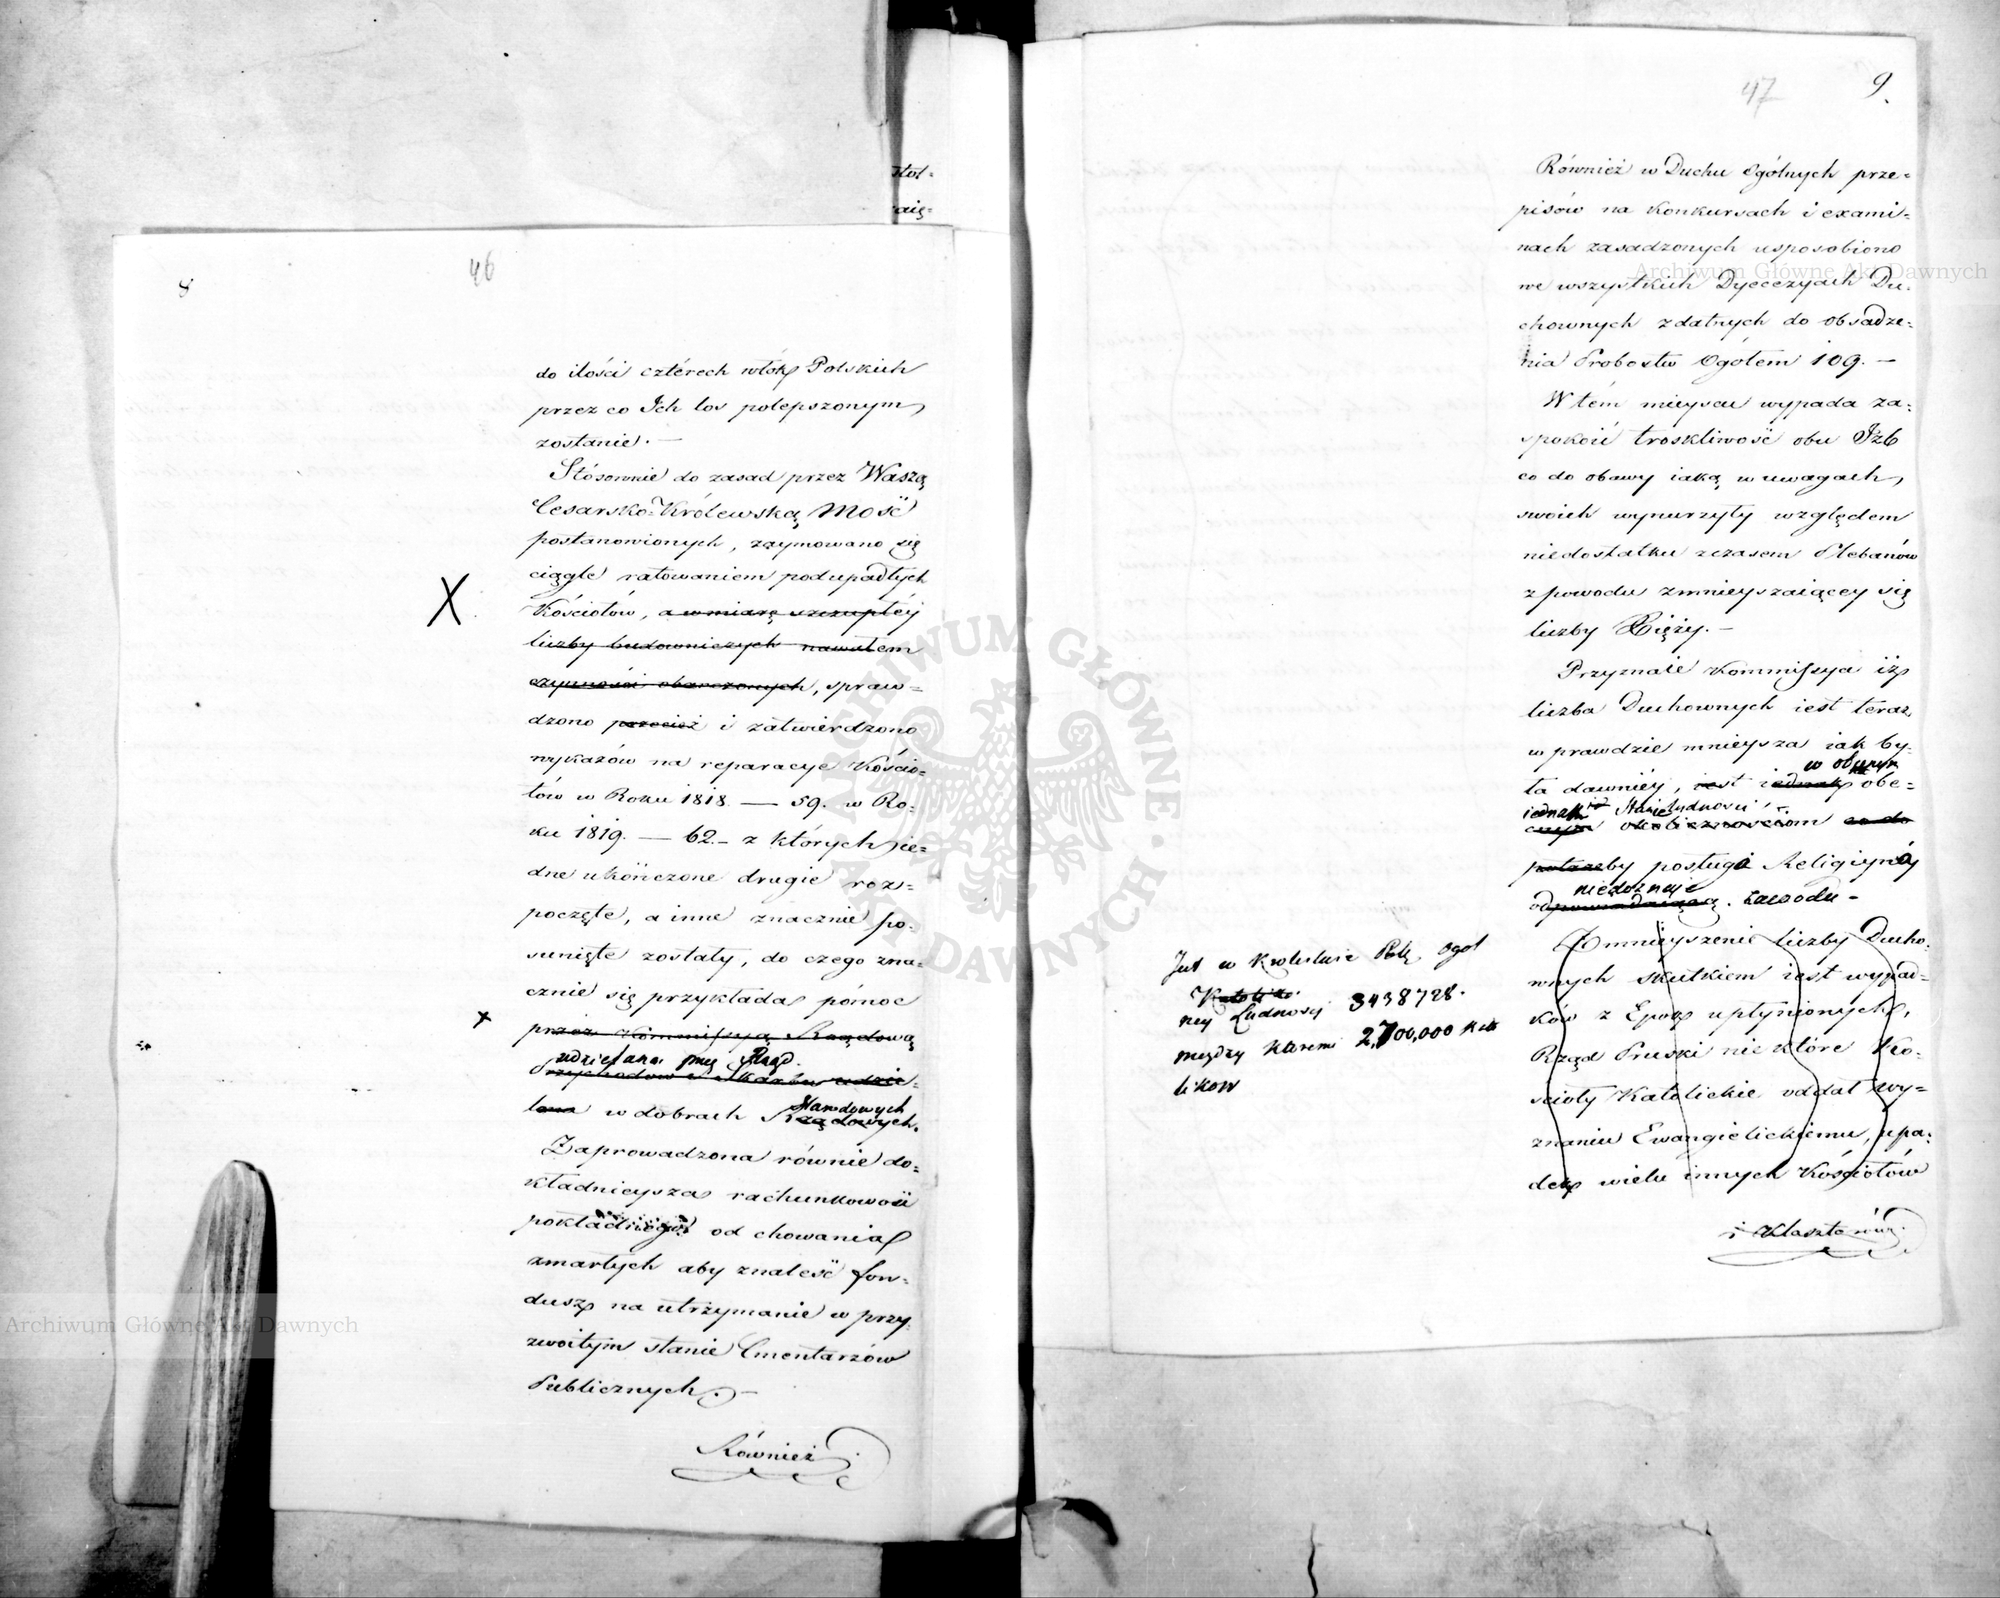 8
46
do ilości cztérech włók Polskich
przez co Ich los polepszonym
zostanie. —
Stósownie do zasad przez Waszą
Cesarsko-Królewską Mość
postanowionych, zaymowano się
ciągle ratowaniem podupadłych
X
Kościołów, a w miarę szczupłéy
liczby budowniczych nawałem
czynności obarczonych, spraw=
dzono przecież i zatwierdzono
wykazów na reparacye Kościo=
łów w Roku 1818. — 59. w Ro=
ku 1819. — 62. – z których ie=
dne ukończone drugie roz=
poczęte, a inne znacznie po=
sunięte zostały, do czego zna=
cznie się przykłada pómoc
x
przez Kommissyą Rządową
udzielana przez Rząd
Przychodow i Skarbu udzie=
lana w dobrach Rządowych.
Narodowych
Zaprowadzona równie do=
kładnieysza rachunkowość
pokładnego od chowania
zmarłych aby znaleść fon=
dusz na utrzymanie w przy=
zwoitym stanie Cmentarzów
Publicznych. —
Również
Koł=
aię=
47
9.
Również w Duchu Ogólnych prze=
pisów na konkursach i exami=
nach zasadzonych usposobiono
we wszystkich Dyecezyach Du=
chownych zdatnych do obsadze=
nia Probostw Ogółem 109. —
W tém mieyscu wypada za=
spokoić troskliwość obu Izb
co do obawy iaką w uwagach
swoich wynurzyły względem
niedostatku zczasem Plebanów
z powodu zmnieyszaiącey się
liczby Xięży. —
Przyznaie Kommissya iż
liczba Duchownych iest teraz
w prawdzie mnieysza iak by=
w obecnym
ła dawniéy, iest iednak obe=
iednak Stanie ludności
cnym okolicznościom co do
potrzeby posługa Religiyna
niedoznaje
odpowiadaiącą. zawodu –
Zmnieyszenie liczby Ducho=
wnych skutkiem iest wypad=
ków z Epok upłynionych,
Rząd Pruski nie które Ko=
ścioły Katolickie oddał wy=
znaniu Ewangielickiemu, upa=
dek wielu innych Kościołów
i Klasztorów.
Jest w Krolestwie Pols. Ogol
Katolikow
ney Ludnosci 3438728.
między ktoremi 2,700,000 Kato
likow
Archiwum Główne Akt Dawnych
Archiwum Główne Akt Dawnych
ARCHIWUM GŁÓWNE · AKT DAWNYCH ·